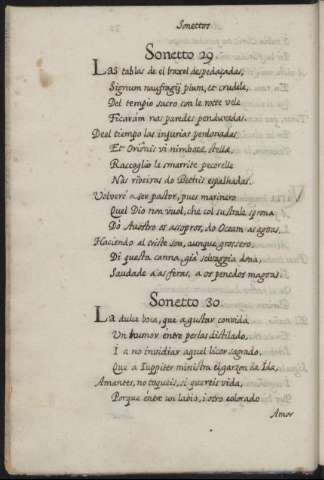 Sonettos
Sonetto 29
Las tablas de el baxel despedaçadas,
Signum naufragij pium, et crudele,
Del tempio sacro con le rotte vele
Ficaraõ nas paredes penduradas.
Del tiempo las injurias perdonadas,
Et Orionis vi nimbosæ stellæ,
Raccoglio le smarrite pecorelle
Nas ribeiras do Betis espalhadas.
Volveré a ser pastor, pues marinero
Quel Dio non vuol, che col su strale sprona
Do Austro os assopros, do Oceam as agoas.
Haciendo al triste son, aunque grosero,
Di questa canna, già selvaggia dona,
Saudade a as feras, a os penedos magoas.
Sonetto 30.
La dulce boca, que a gustar convida
Un humor entre perlas distilado,
I a no invidiar aquel licor sagrado,
Que a Iuppiter ministra el garzon de Ida,
Amantes, no toqueis, si quereis vida,
Porque entre un labio, i otro colorado
Amor